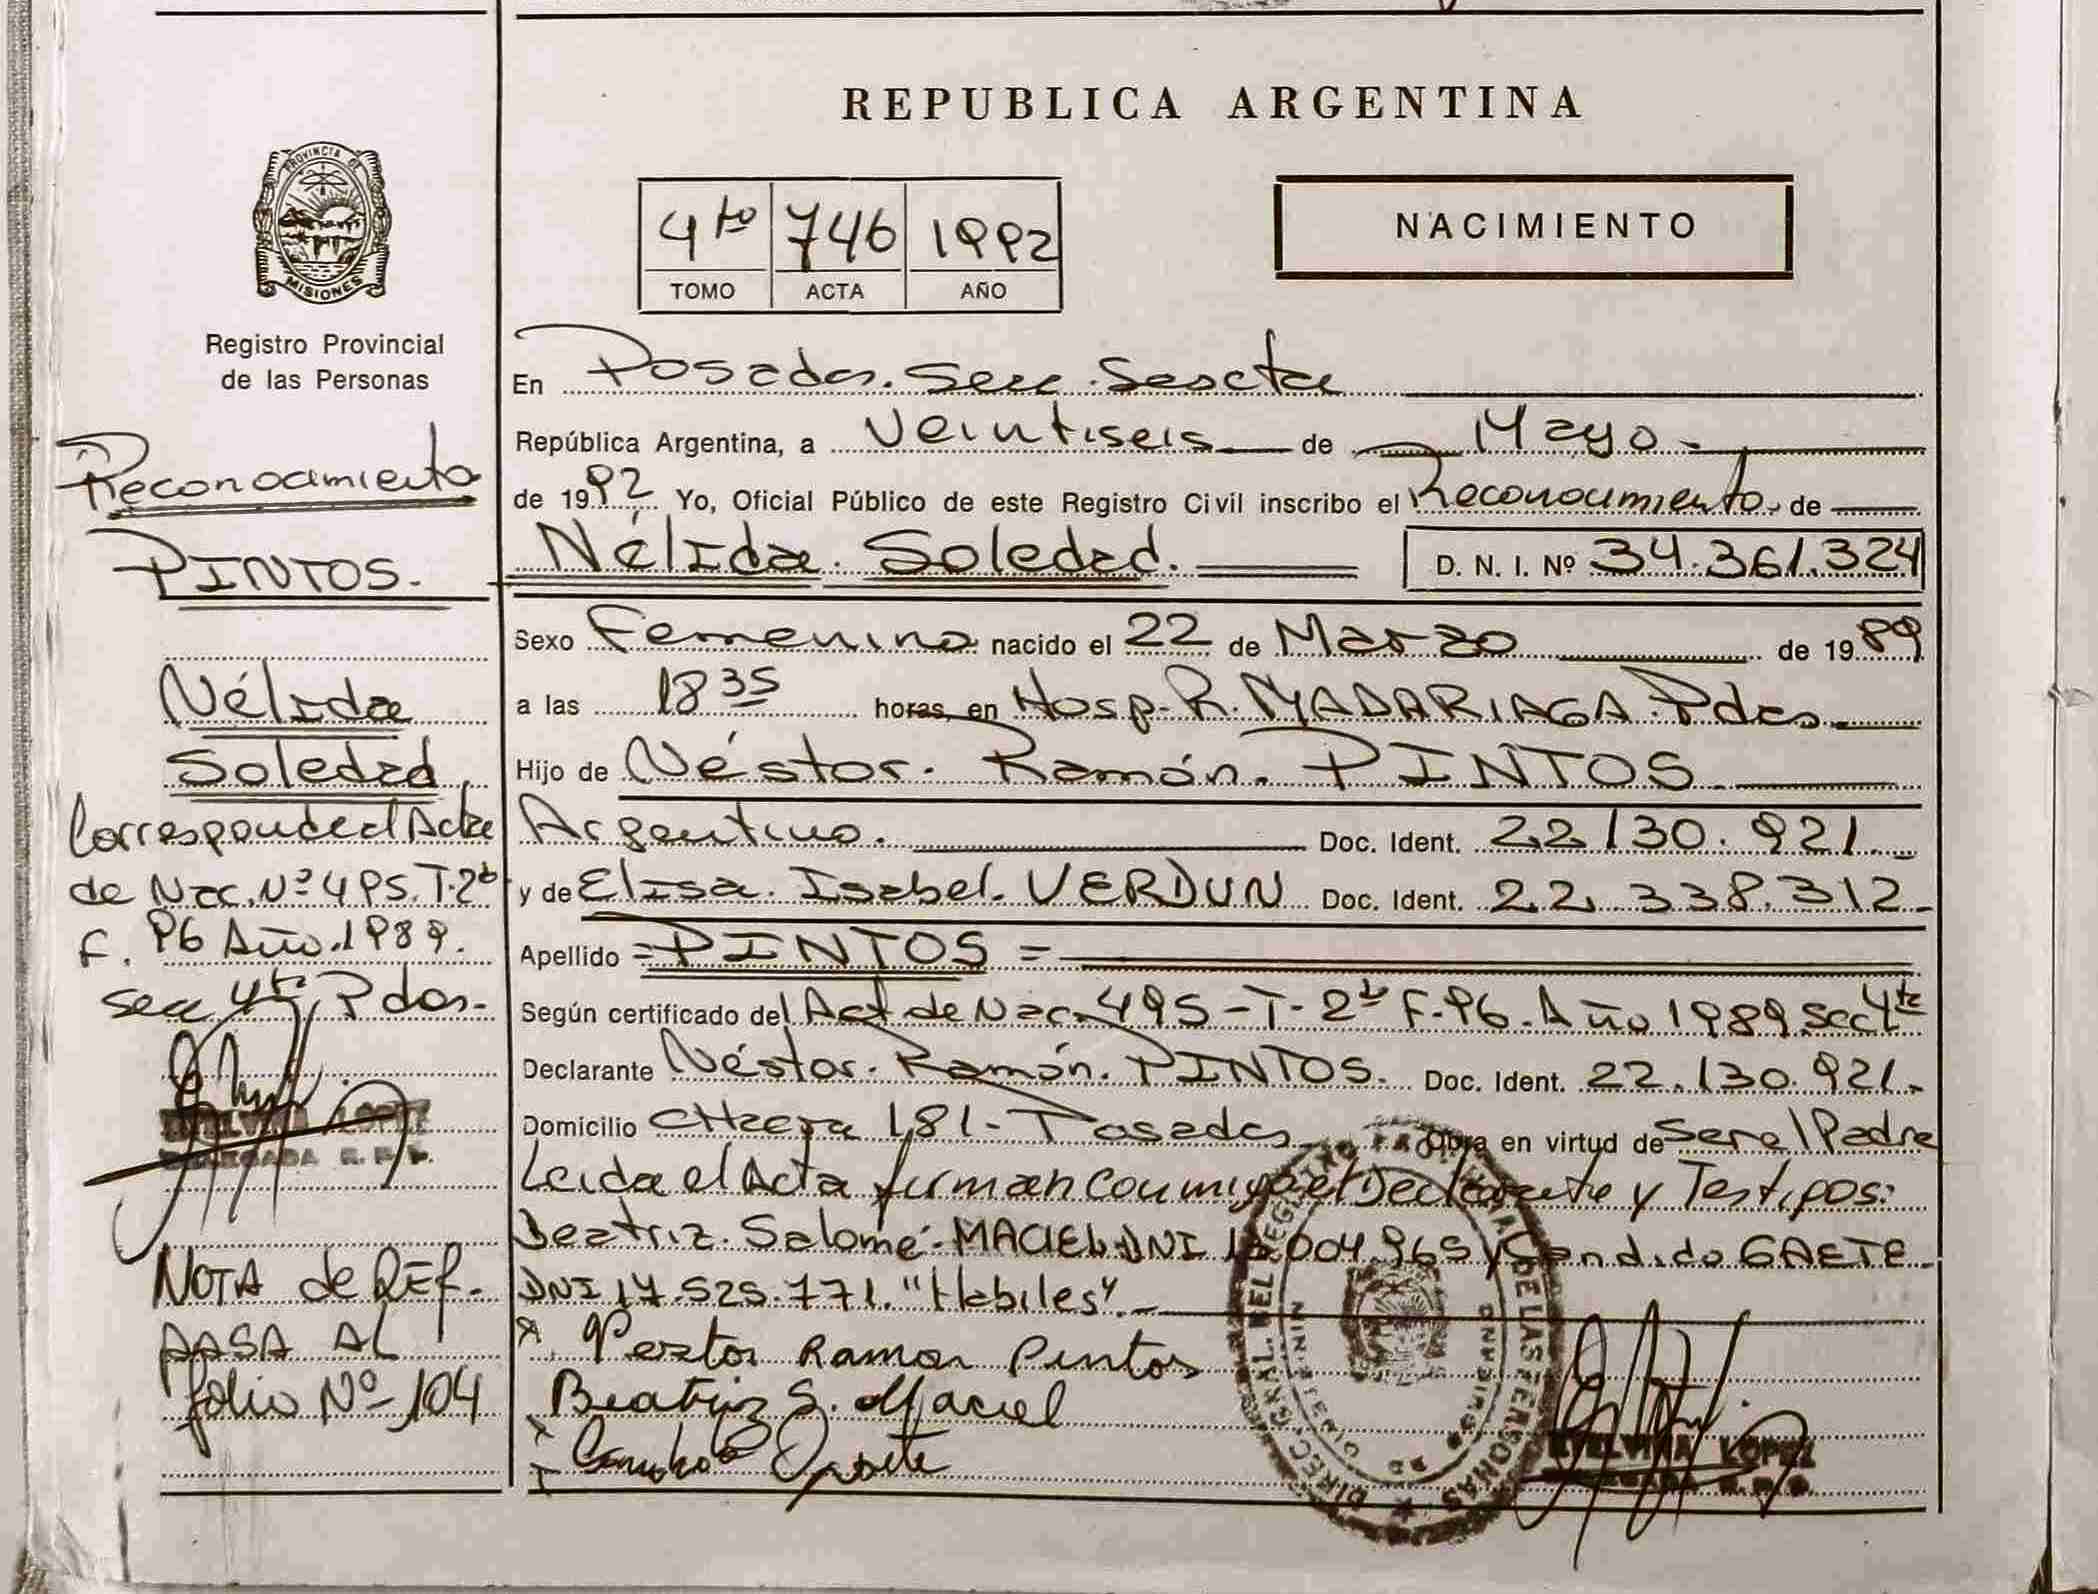 REPUBLICA ARGENTINA
PROVINCIA DE
MISIONES
Registro Provincial
de las Personas
4to 746 1992
TOMO ACTA AÑO
NACIMIENTO
Reconocimiento
PINTOS.
Nélida
Soledad
Corresponde al Acta
de Nac. Nº 495. T. 2º
F. 96 Año. 1989.
secc 4ta Pdas.
LOPEZ
NOTA de REF.
PASA AL
folio Nº 104
En Posadas. Secc. Sescta
República Argentina, a Veintiseis de Mayo
de 1992 Yo, Oficial Público de este Registro Civil inscribo el Reconocimiento de
Nélida. Soledad. D. N. I. Nº 34.361.324
Sexo Femenino nacido el 22 de Marzo de 1989
a las 18 35 horas, en Hosp. R. MADARIAGA. Pdas
Hijo de Néstor. Ramón. PINTOS
Argentino. Doc. Ident. 22.130.921.
y de Elisa. Isabel. VERDUN Doc. Ident. 22.338.312.
Apellido = PINTOS =
Según certificado del Act de Nac. 495 - T - 2º F. 96. Año 1989 Secc 4ta
Declarante Néstor. Ramón. PINTOS. Doc. Ident. 22.130.921.
Domicilio 181 - Posadas Obra en virtud de Ser el Padre
Leida el Acta firman conmigo el Declarante y Testigos:
Beatriz. Salomé. MACIEL DNI 004.965 y Candido GAETE.
DNI 17.525.771. "Habiles"
Ramon Pintos
Beatriz S. Maciel
LOPEZ